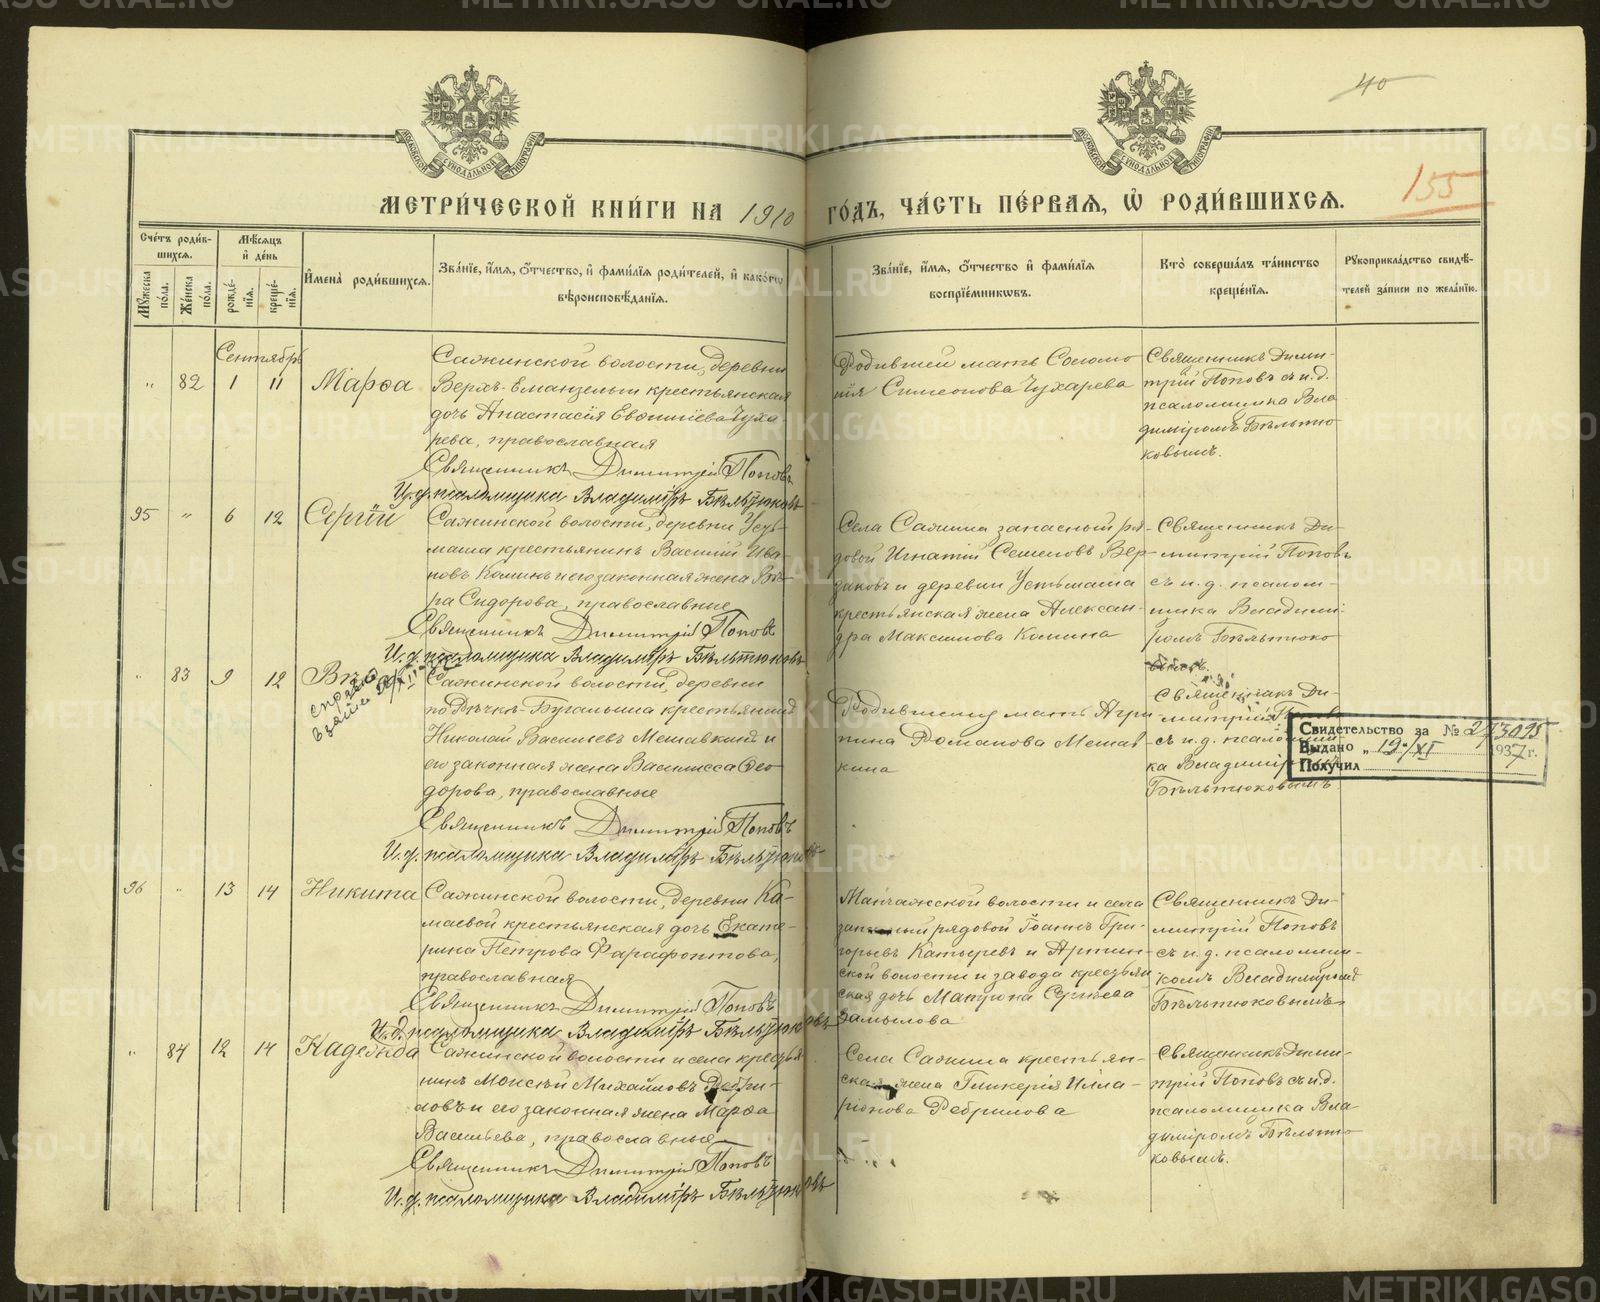 40
155
МЕТРИ́ЧЕСКОЙ КНИ́ГИ НА 1910 ГО́ДЪ, ЧА́СТЬ ПЕ́РВАЯ, Ѡ РОДИ́ВШИХСЯ.
Сче́тъ роди́в-
шихся.
Мꙋ́жеска по́ла.
Же́нска по́ла.
Мѣ́сяцъ и де́нь
рожде́-
нїя.
креще́-
нїя.
И҆мена̀ роди́вшихся.
Зва́нїе, и҆́мя, ѻ҆́тчество, и҆ фами́лїя роди́телей, и҆ како́гѡ
вѣроисповѣ́данїя.
Зва́нїе, и҆́мя, ѻ҆́тчество и҆ фами́лїя
воспрїе́мникѡвъ.
Кто̀ соверша́лъ та́инство
креще́нїя.
Рꙋкоприкла́дство свидѣ́-
телей за́писи по жела́нїю.
Сентябрь
" 82 1 11 Марѳа
Сажинской волости, деревни
Верхъ-Еманзельги крестьянская
дочь Анастасія Евѳиміева Чуха-
рева, православная
Священникъ Димитрій Поповъ
И.д. псаломщика Владиміръ Бѣльтюковъ
Родившей мать Соломо
нія Симеонова Чухарева
Священникъ Дими-
трій Поповъ съ и.д.
псаломщика Вла
диміромъ Бѣльтю
ковымъ.
95 " 6 12 Сергій
Сажинской волости, деревни Усть-
маша крестьянинъ Василій Ива-
новъ Коминъ и его законная жена Вѣ-
ра Сидорова, православные
Священникъ Димитрій Поповъ
И.д. псаломщика Владиміръ Бѣльтюковъ
Села Сажина запасный ря-
довой Игнатій Семеновъ Вер-
заковъ и деревни Устьмаша
крестьянская жена Алексан-
дра Максимова Комина
Священникъ Ди-
митрій Поповъ
съ и.д. псалом-
щика Владими-
ромъ Бѣльтюко
" 83 9 12 Вѣра
Сажинской волости, деревни
по Рѣчкѣ-Бугалыша крестьянинъ
Николай Васильевъ Мешавкинъ и
его законная жена Василисса Ѳео-
дорова, православные
Священникъ Димитрій Поповъ
И.д. псаломщика Владиміръ Бѣльтюковъ
Родившему мать Агри
пина Романова Мешав
кина
Священникъ Ди-
митрій Поповъ
съ и.д. псаломщи-
ка Владиміромъ
Бѣльтюковымъ
Свидетельство за № 2/73095
Выдано „ 19/XI 1937 г.
Получил
96 " 13 14 Никита
Сажинской волости, деревни Ка-
маевой крестьянская дочь Екате-
рина Петрова Фарафонтова,
православная
Священникъ Димитрій Поповъ
И.д. псаломщика Владиміръ Бѣльтюковъ
Манчажской волости и села
запасный рядовой Іоаннъ Гри-
горьевъ Катыревъ и Артин-
ской волости и завода крестьян
ская дочь Матрона Сергіева
Замылова
Священникъ Ди-
митрій Поповъ
съ и.д. псаломщи-
комъ Владиміромъ
Бѣльтюковымъ
" 84 12 14 Надежда
Сажинской волости и села крестья-
нинъ Моисей Михайловъ Ребри-
ловъ и его законная жена Марѳа
Васильева, православные
Священникъ Димитрій Поповъ
И.д. псаломщика Владиміръ Бѣльтюковъ
Села Сажина крестьян-
ская жена Гликерія Илла-
ріонова Ребрилова
Священникъ Дими-
трій Поповъ съ и.д.
псаломщика Вла
диміромъ Бѣльтю
ковымъ.